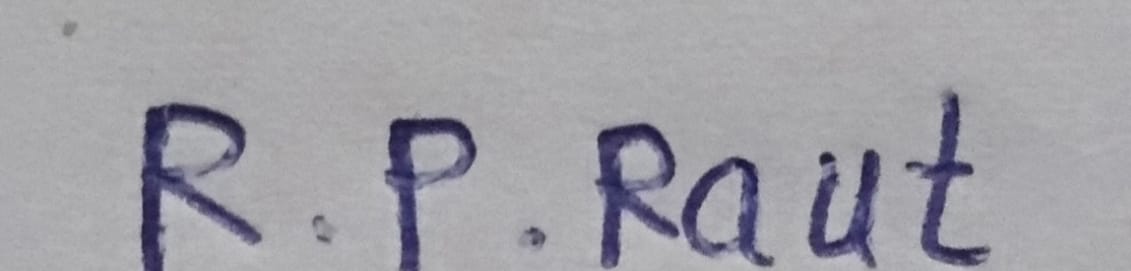 R. P. Raut